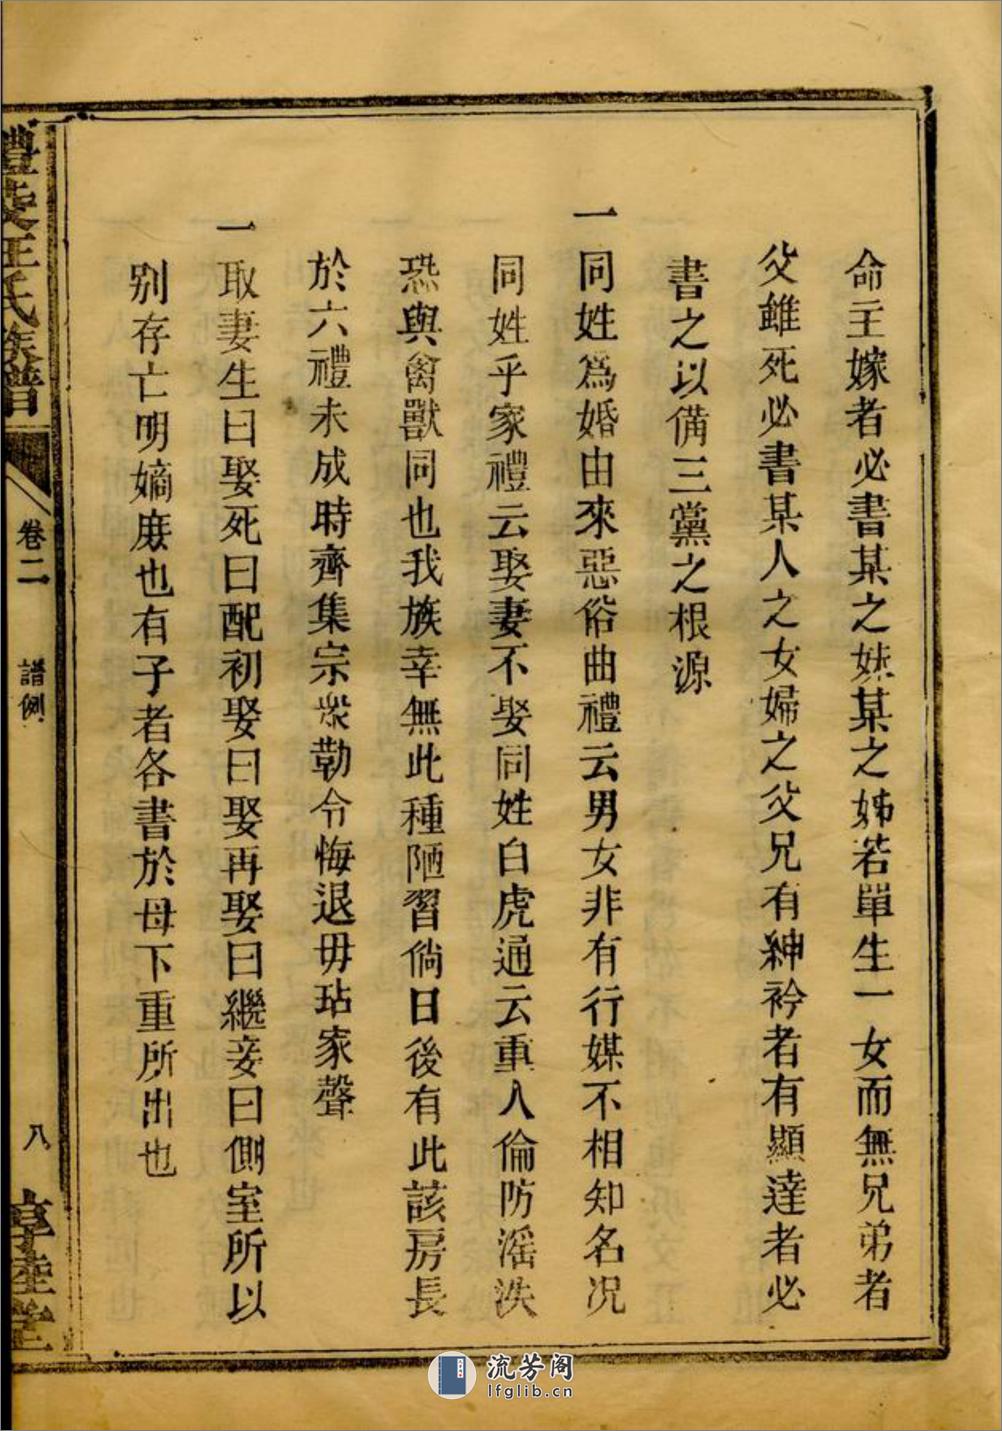 命主嫁者必書某之妹某之姊若單生一女而無兄弟者
父雖死必書某人之女婦之父兄有紳衿者有顯達者必
書之以備三黨之根源
一同姓爲婚由來惡俗曲禮云男女非有行媒不相知名况
同姓乎家禮云娶妻不娶同姓白虎通云重人倫防滛泆
恐與禽獸同也我族幸無此種陋習倘日後有此該房長
於六禮未成時齊集宗衆勒令悔退毋玷家聲
一取妻生曰娶死曰配初娶曰娶再娶曰繼妾曰側室所以
别存亡明嫡庻也有子者各書於母下重所出也
醴陵汪氏族譜
卷二
譜例
八
享睦堂
流芳阁
lfglib.cn